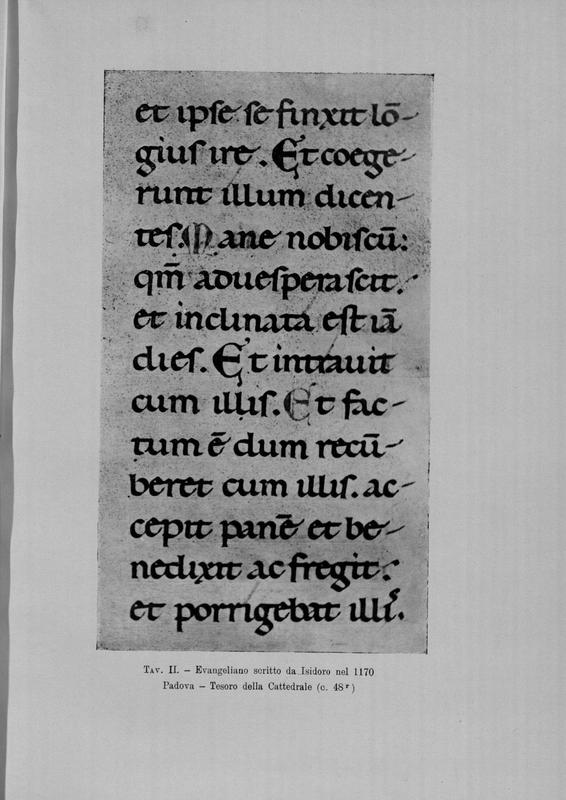 et ipſe ſe finxit lō-
giuſ ire. Et coege-
runt illum dicen-
teſ. Mane nobiſcū:
qm̄ adueſperaſcit.
et inclinata eſt iā
dieſ. Et intrauit
cum illiſ. Et fac-
tum ē dum recū-
beret cum illiſ. ac-
cepit panē et be-
nedixit ac fregit:
et porrigebat illiſ.
Tav. II. – Evangeliano scritto da Isidoro nel 1170
Padova – Tesoro della Cattedrale (c. 48ʳ)